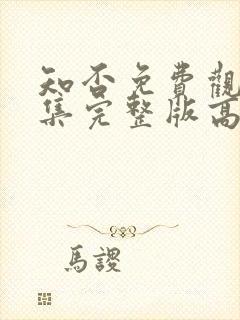 知否免費觀
集完整版高
馬謖